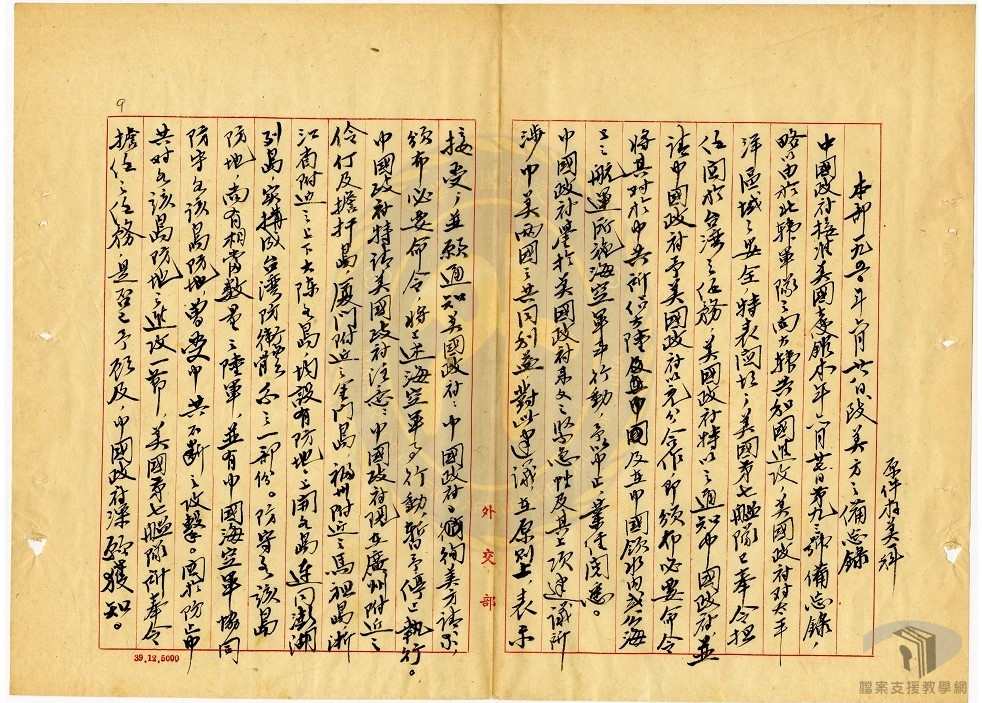 原件存美科
本部一九五〇年六月廿八日致美方之備忘錄
中國政府接准美國大使館本年六月廿七日第九三號備忘錄,
略以由於北韓軍隊之南大韓共和國進攻,美國政府對太平
洋區域之安全,特表關切,美國第七艦隊已奉令担
任關於台灣之任務,美國政府特以之通知中國政府,並
請中國政府予美國政府以充分合作,即頒布必要命令
將其對於中共所佔大陸及在中國及在中國領水內或公海
上之航運所施海空軍事行動,予以停止,業經閱悉。
中國政府鑒於美國政府來文之緊急性及其上項建議所
涉中美兩國之共同利益,對此建議在原則上,表示
接受,並願通知美國政府:中國政府已徇美方請求,
頒布必要命令,將上述海空軍事行動,暫予停止執行。
中國政府特請美國政府注意:中國政府現在廣州附近之
伶仃及擔杆島,廈門附近之金門島,福州附近之馬祖島,浙
江省附近之上下大陳各島,均設有防地,上開各島連同澎湖
列島,實構成台灣防衛體系之一部份。防守各該島
防地,尚有相當數量之陸軍,並有中國海空軍協同
防守各該島防地,曾受中共不斷之攻擊。關於防止中
共對各該島防地之進攻一節,美國第七艦隊所奉令
擔任之任務,是否已予顧及,中國政府深願獲知。
外交部
39.12.5000
9
檔案支援教學網